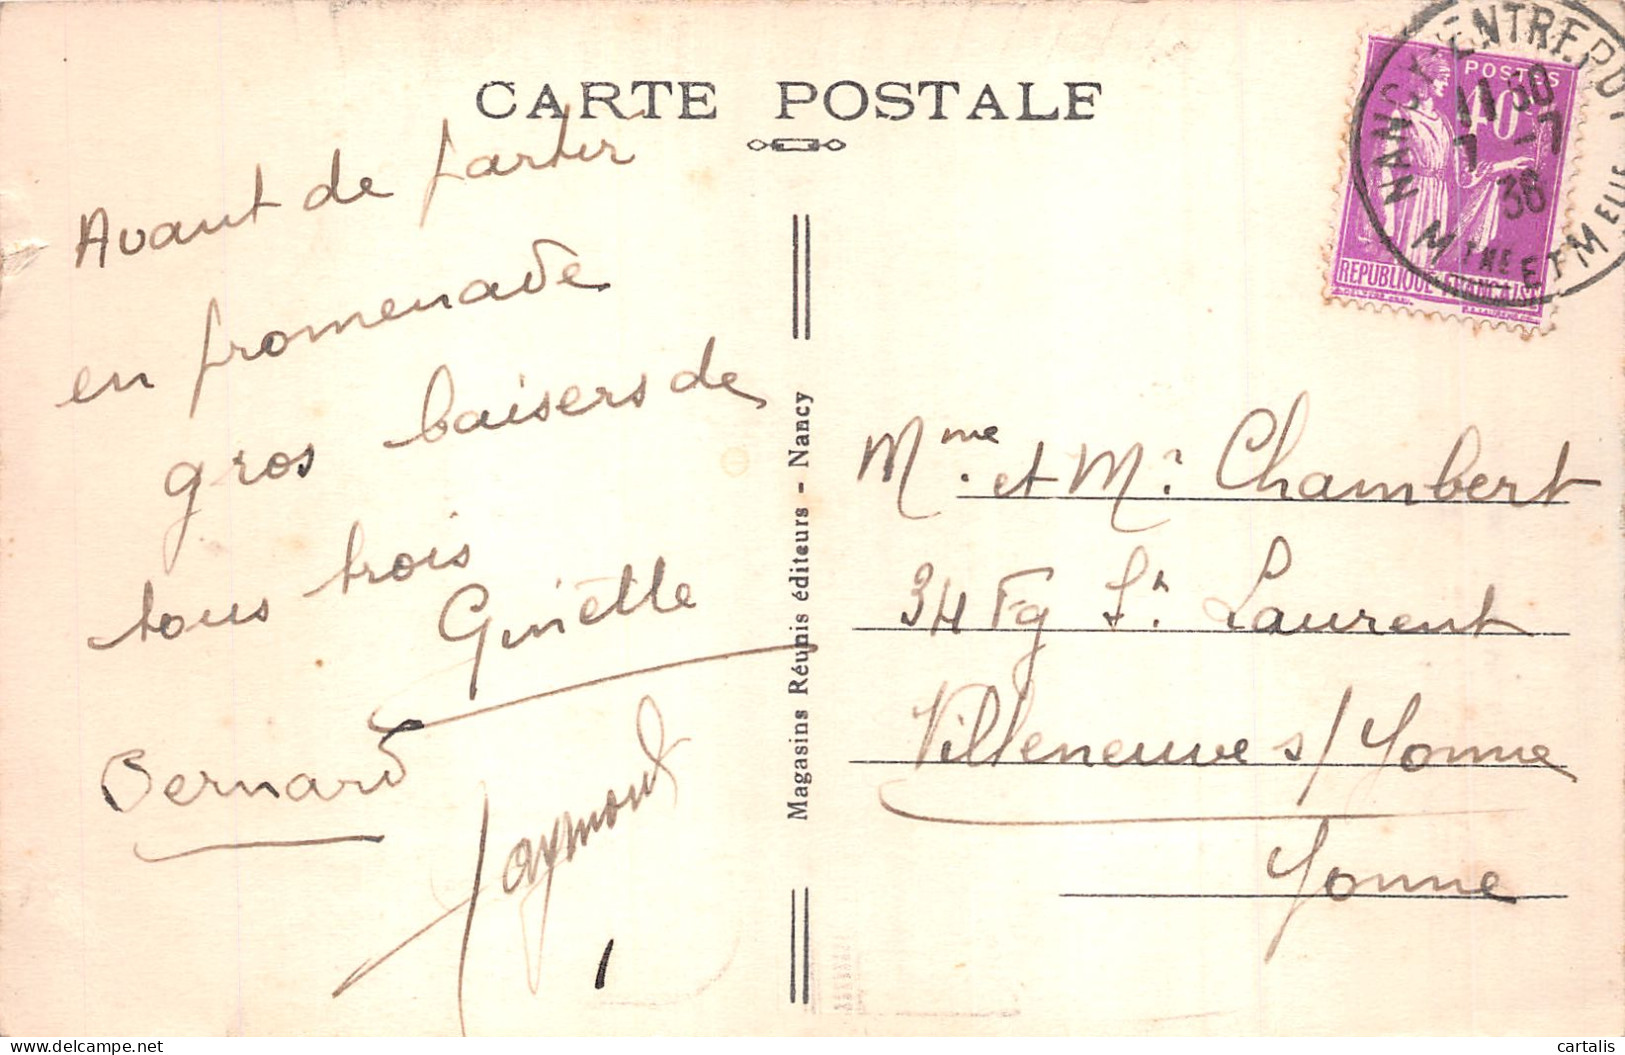 CARTE POSTALE
Avant de partir
en promenade
gros baisers de
tous trois
Ginette
Bernard
Raymond
Magasins Réunis éditeurs - Nancy
POSTES
40c
REPUBLIQUE FRANÇAISE
NANCY ENTREPOT
11 30
7 -7
36
MTHE ET MELLE
Mme. et Mr. Chambert
34 Fg St. Laurent
Villeneuve s/ Yonne
Yonne
cartalis
delcampe.net